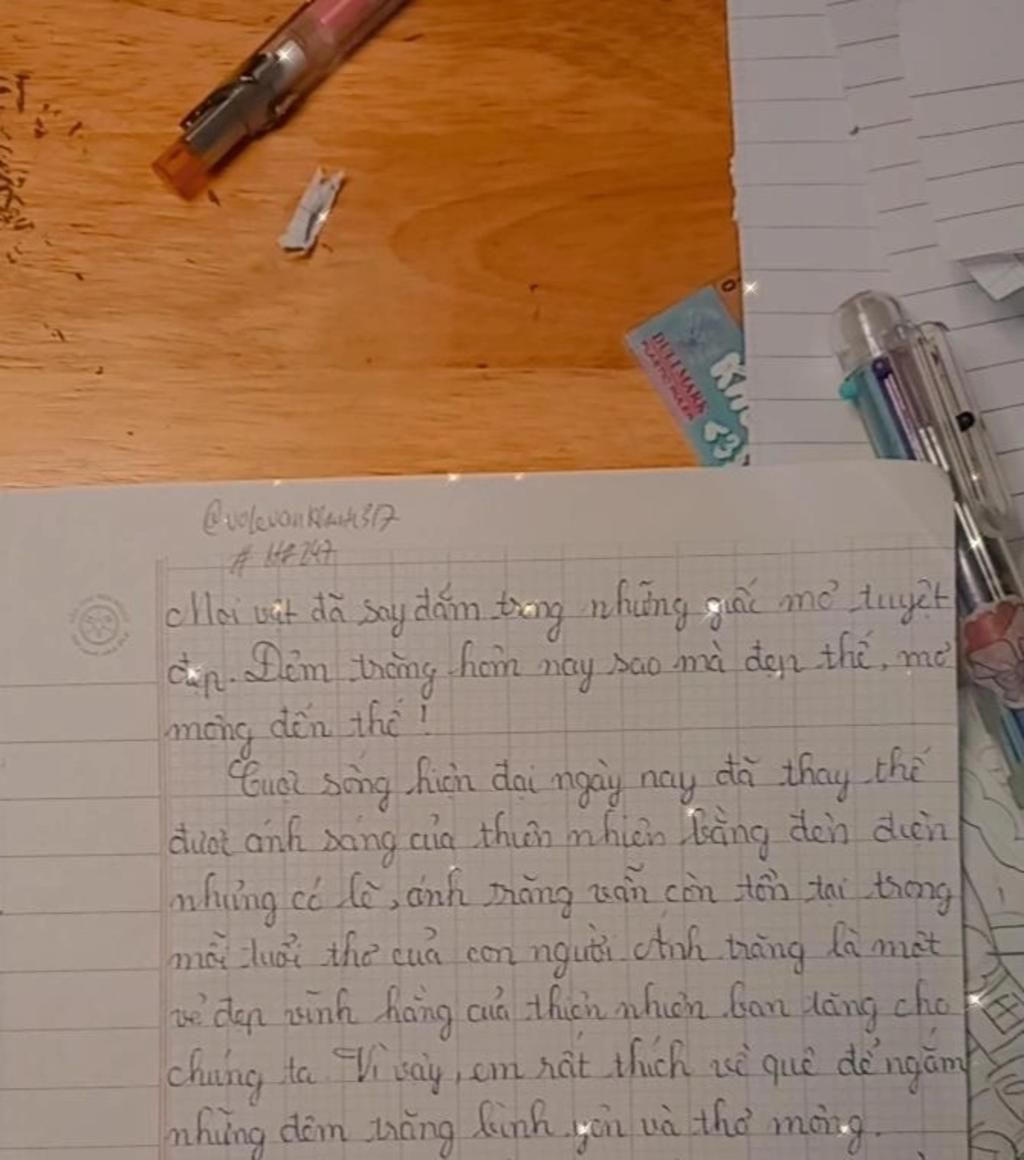 DULLMARK
KH
<3
@volevankhanh317
#
Mọi vật đã say đắm trong những giấc mơ tuyệt
đẹp. Đêm trăng hôm nay sao mà đẹp thế, mơ
mộng đến thế!
Cuộc sống hiện đại ngày nay đã thay thế
được ánh sáng của thiên nhiên bằng đèn điện
nhưng có lẽ, ánh trăng vẫn còn tồn tại trong
mỗi tuổi thơ của con người. Ánh trăng là một
vẻ đẹp vĩnh hằng của thiên nhiên ban tặng cho
chúng ta. Vì vậy, em rất thích về quê để ngắm
những đêm trăng bình yên và thơ mộng.